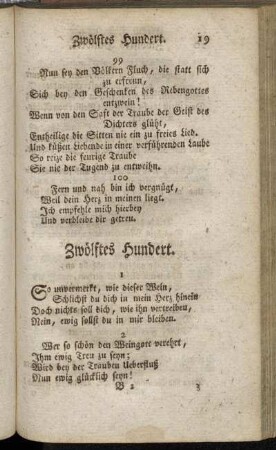 Zwölftes Hundert. 19
99
Nun sey den Völkern Fluch, die statt sich
zu erfreun,
Sich bey den Geschenken des Rebengottes
entzwein!
Wenn von den Saft der Traube der Geist des
Dichters glüht,
Entheilige die Sitten nie ein zu freies Lied.
Und küßen Liebende in einer verführenden Laube
So reize die feurige Traube
Sie nie der Tugend zu entweihn.
100
Fern und nah bin ich vergnügt,
Weil dein Herz in meinen liegt.
Ich empfehle mich hierbey
Und verbleibe dir getreu.
Zwölftes Hundert.
1
So unvermerkt, wie dieser Wein,
Schlichst du dich in mein Herz hinein
Doch nichts soll dich, wie ihn vertreiben,
Nein, ewig sollst du in mir bleiben.
2
Wer so schön den Weingott verehrt,
Ihm ewig Treu zu seyn;
Wird bey der Trauben Ueberfluß
Nun ewig glücklich seyn!
B 2 3